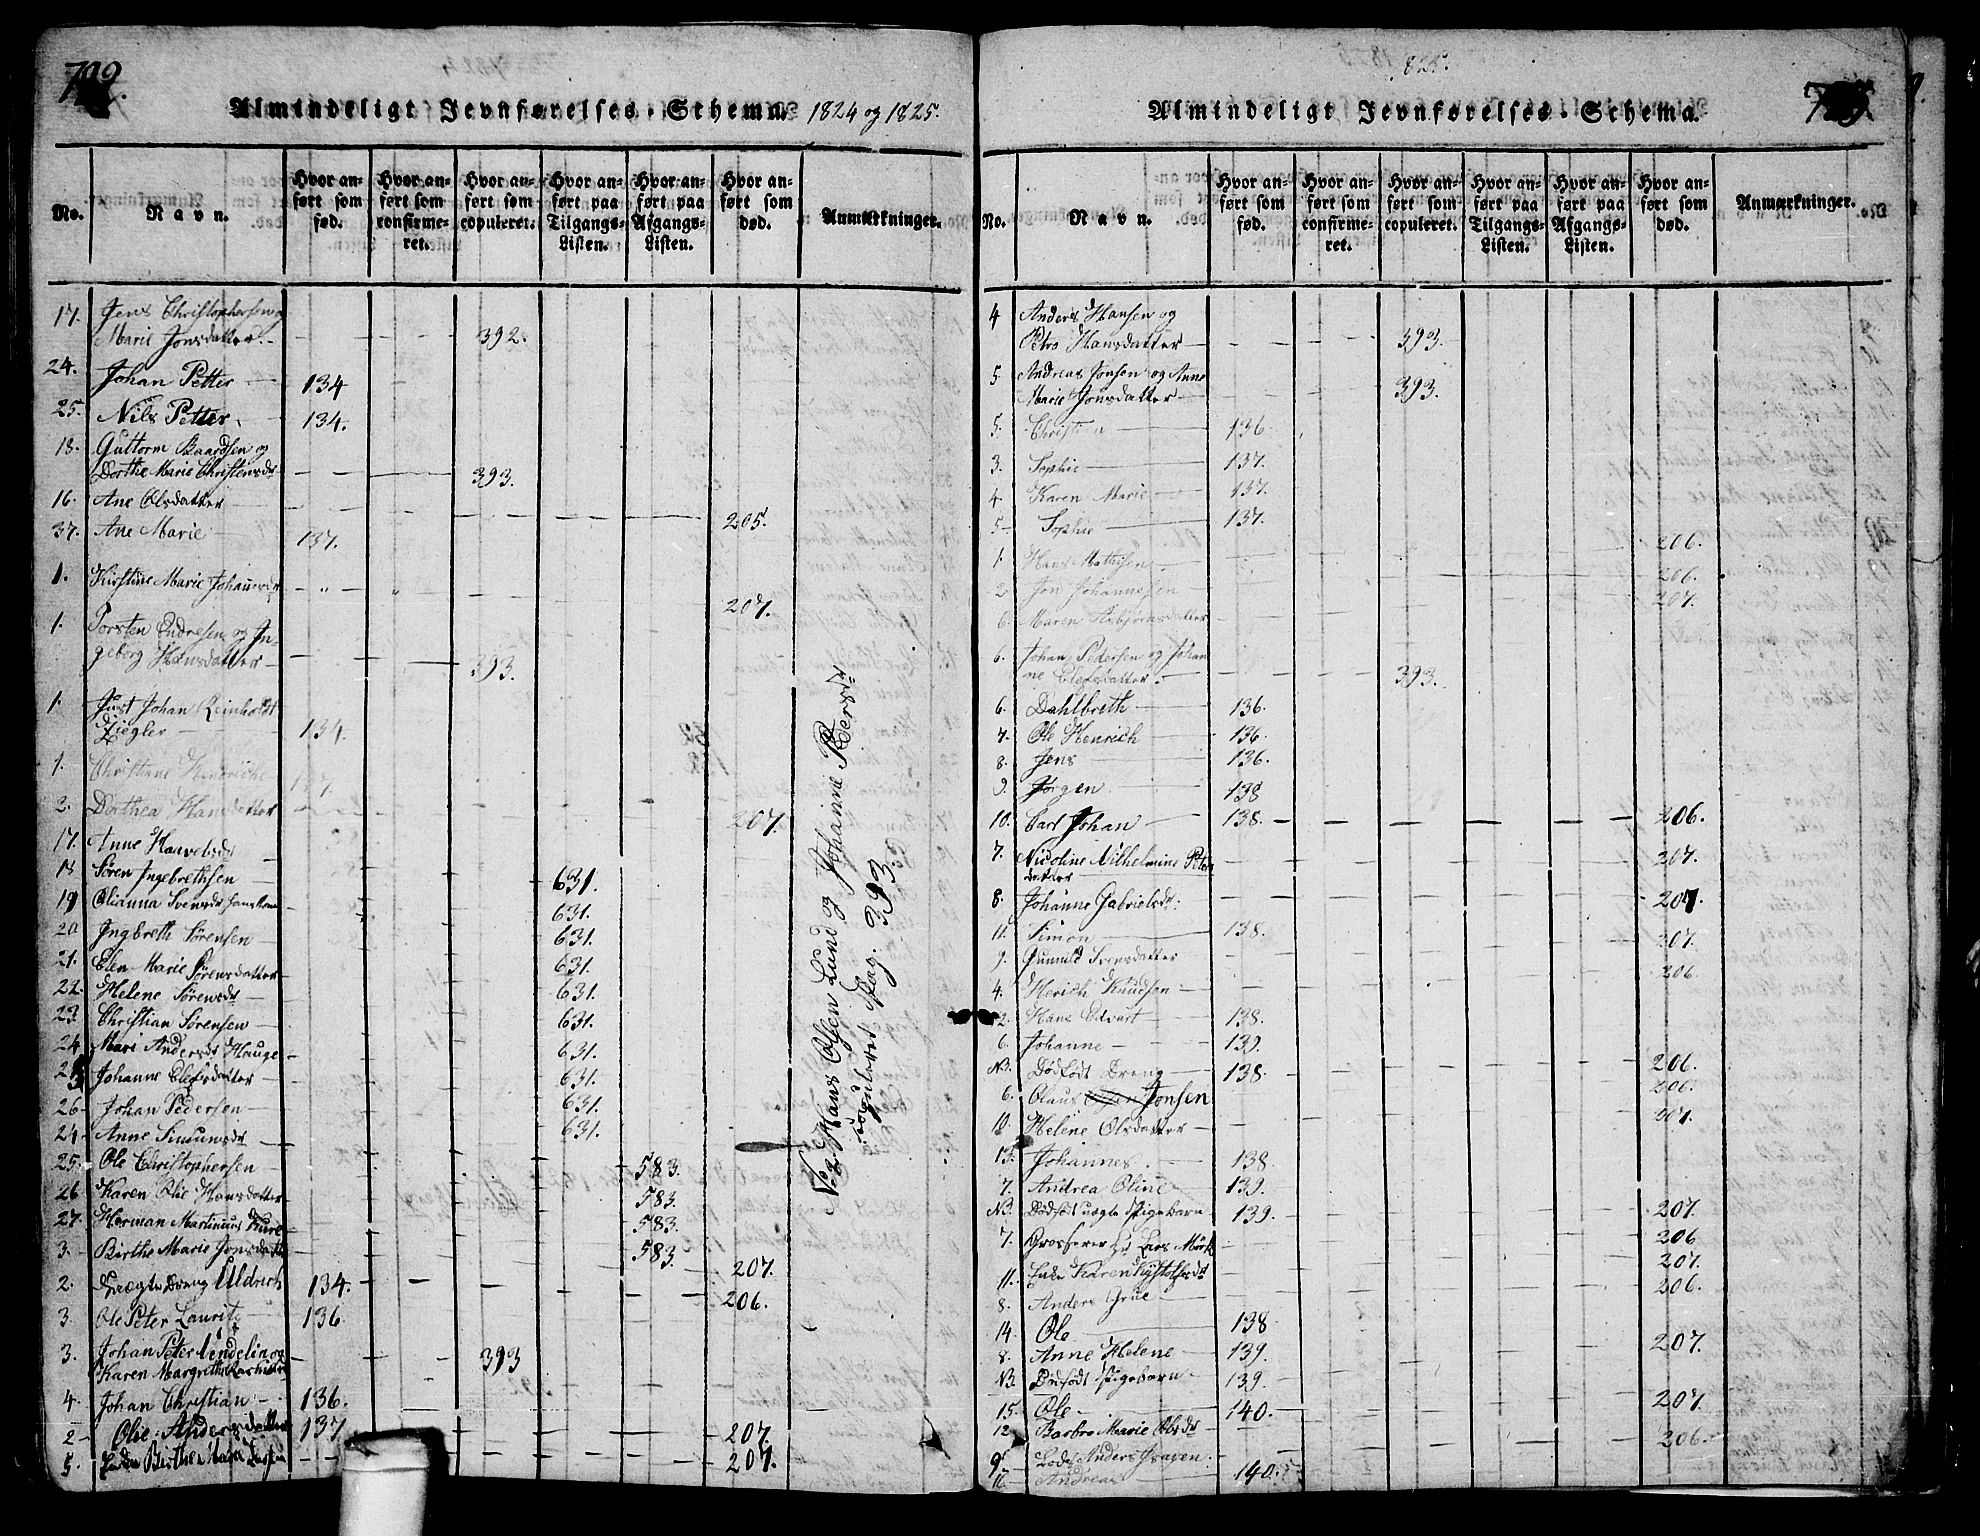 Almindeligt Jevnførelses-Schema 1824 og 1825.
No.
Navn.
Hvor anført som fød.
Hvor anført som confirmeret.
Hvor anført som copuleret.
Hvor anført paa Tilgangs-Listen.
Hvor anført paa Afgangs-Listen.
Hvor anført som død.
Anmærkninger.
17. Jens Christophersen og
Marie Jonsdatter. 392.
24. Johan Petter 134
25. Nils Petter 134.
18. Guttorm Baardsen og
Dorthe Marie Christensdr 393.
16. Ane Olsdatter 205.
37. Ane Marie 137.
1. Kirstine Marie Johansdr 207.
1. Torsten Endresen og In-
geborg Hansdatter 393.
1. Just Johan Reinholdt
Ziegler 134.
1. Christiane Hendriche 137.
2. Dorthea Hansdatter 207.
17. Anne
18 Søren Ingebrethsen 631.
19 Olianna Svensdr 631.
20 Ingbreth Sørensen 631.
21. Elen Marie Sørensdatter 631.
22. Helene Sørensdr 631.
23. Christian Sørensen 631.
24 Mari Andersdr Hauge 631.
25 Johanne Olefsdatter 631.
26 Johan Pedersen 631.
24 Anne Simunsdr 631.
25. Ole Christophersen 583.
26 Karen Olie Hansdatter 583.
27. Herman Martinius Kure 583.
3. Birthe Marie Jonsdatt 583. 207.
2. Uægte Dreng Uldrich 134.
206.
3. Ole Peter Lauritz 136
3. Johan Peter Vendelin og
Karen Margrethe 393
4. Johan Christian 136.
2 Olie Andersdatter 137 207.
5. Enken Birthe 207.
No 2 Hans Olsen Lund og Johanne Pedersdr
copuleret Pag. 393.
1825.
Almindeligt Jevnførelses-Schema.
No.
Navn.
Hvor anført som fød.
Hvor anført som confirmeret.
Hvor anført som copuleret.
Hvor anført paa Tilgangs-Listen.
Hvor anført paa Afgangs-Listen.
Hvor anført som død.
Anmærkninger.
4 Anders Hansen og
Petro Hansdatter 393.
5. Andreas Jonsen og Anne
Marie Jonsdatter 393.
5. Christian 136
3. Sophie 137.
4. Karen Marie 137.
5 Sophie 137.
1. Hans Mathisen 206.
2 Jon Johannesen 206.
6. Maren Asbjørnsdatter 207.
6. Johan Pedersen og Johan
ne Olefsdatter. 393.
6. Dahlbreth 136.
7. Ole Henrich 136.
8. Jens 136.
9. Jørgen 138
10. Carl Johan 138. 206.
7. Nicoline Vilhelmine Peters
datter 207.
8. Johanne Gabrielsdr. 207.
11. Simon 138.
9. Gunnild Svensdatter 207.
4. Herich Knudsen 206
12. Hans Edvart 138.
6. Johanne 139.
NB. Dødfødt Dreng 138. 206.
6. Olaus Jonsen 206.
10. Helene Olsdatter 207.
13. Johannes 138.
7. Andrea Oline 139.
NB. Dødfødt uægte Pigebarn 139. 207.
7. Grosserer Hr Lars Mørk 206
11. Enke Karen 207.
8. Anders Grue 206.
14. Ole 138
8. Anne Helene 139. 207.
NB. Dødfødt Pigebarn 139.
15. Ole 140. 207.
12 Barbro Marie Olsdr 206.
9. Lods Anders
16 Andreas 140.